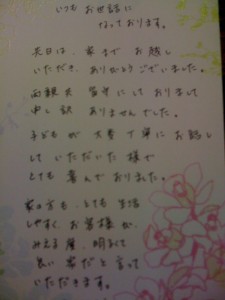 いつも お世話に
なっております。
先日は、家まで お越し
いただき、ありがとうございました。
両親共 留守にしておりまして
申し訳 ありませんでした。
子どもが 大変 丁寧に お話し
して いただいた 様で
とても 喜んで おりました。
家の方も、とても 生活
しやすく、お客様が
みえる 度、明るくて
良い 家だと 言って
いただきます。